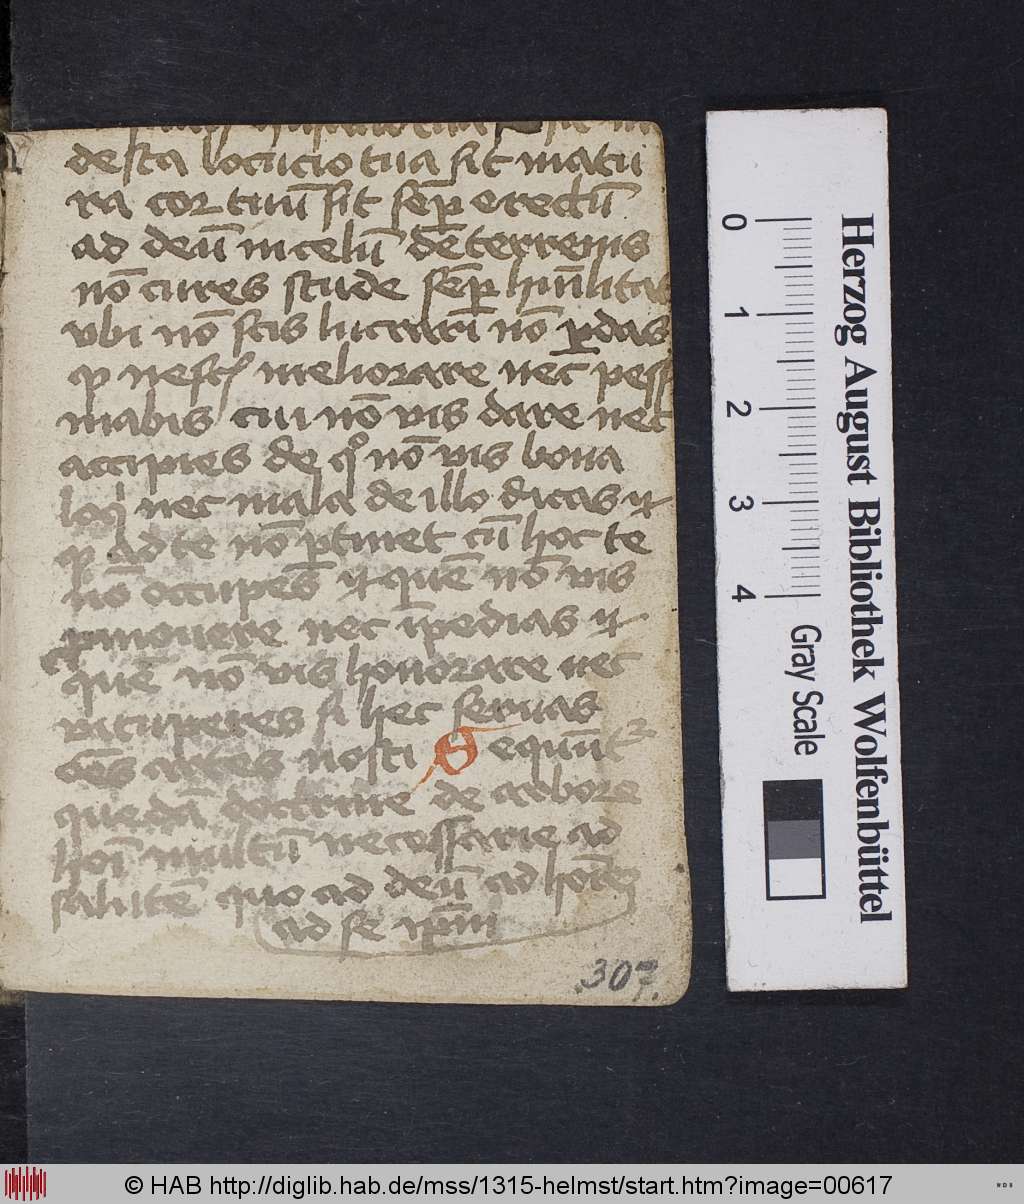 desta locucio tua sit matu
ra cor tuū sit semp̄ erectū
ad deū in celū de terrenis
nō cures stude semp̄ hūilitas
vbi nō scis lucrari nō ꝑdas
nescis meliorare nec pessi
mabis cui nō vis dare nec
accipies de quo nō vis bona
loqi nec mala de illo dicas it̄
qd ad te nō ꝑtinet cū hoc te
nō occupes it̄ quē nō vis
ꝓmouere nec īpedias it̄
quē nō vis honorare nec
vituperes si hec seruas
oēs artes nosti Sequūtr
quedā doctrine de arbore
hoī multū necessarie ad
salutē quo ad deū ad hoīes
ad se ipm̄
307.
Herzog August Bibliothek Wolfenbüttel
0 1 2 3 4 Gray Scale
© HAB http://diglib.hab.de/mss/1315-helmst/start.htm?image=00617